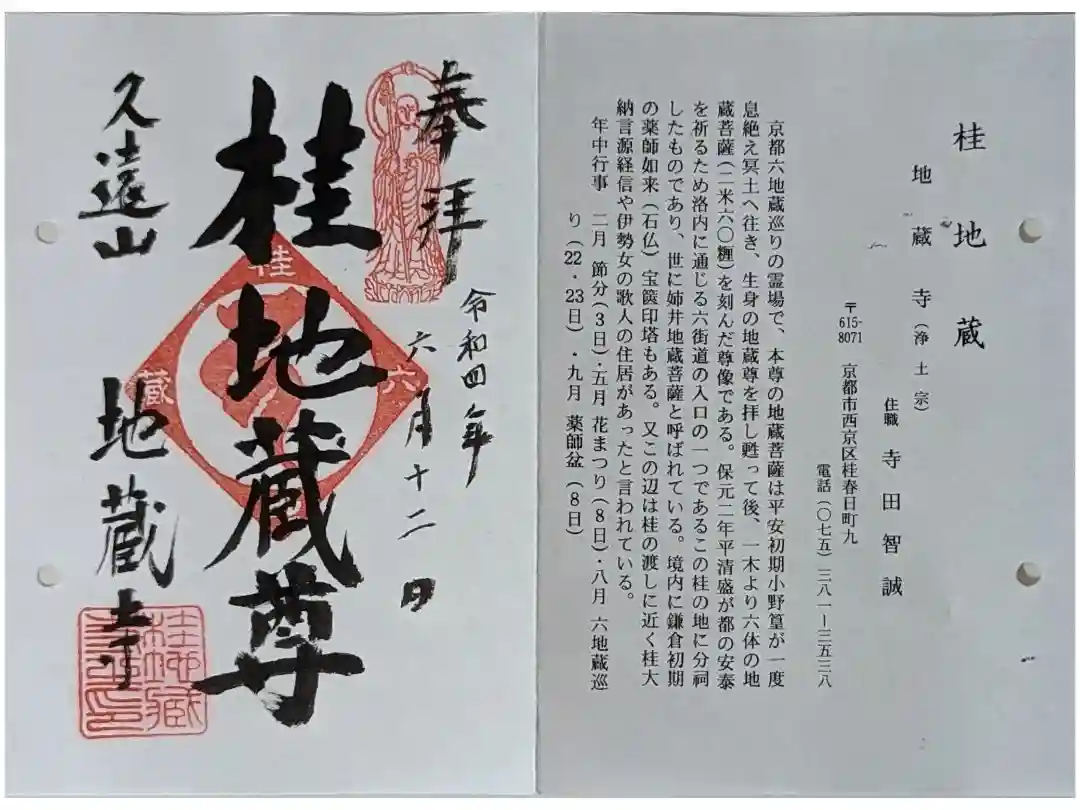 桂地蔵
地蔵寺(浄土宗)
住職 寺田智誠
〒615-8071 京都市西京区桂春日町九
電話(〇七五)三八一ー三五三八
京都六地蔵巡りの霊場で、本尊の地蔵菩薩は平安初期小野篁が一度
息絶え冥土へ往き、生身の地蔵尊を拝し甦って後、一木より六体の地
蔵菩薩(二米六〇糎)を刻んだ尊像である。保元二年平清盛が都の安泰
を祈るため洛内に通じる六街道の入口の一つであるこの桂の地に分祠
したものであり、世に姉井地蔵菩薩と呼ばれている。境内に鎌倉初期
の薬師如来(石仏)宝篋印塔もある。又この辺は桂の渡しに近く桂大
納言源経信や伊勢女の歌人の住居があったと言われている。
年中行事 二月 節分(3日)・五月 花まつり(8日)・八月 六地蔵巡
り(22・23日)・九月 薬師盆(8日)
奉拝
令和四年
六月十二日
桂地蔵尊
久遠山
地蔵寺
桂
六
蔵